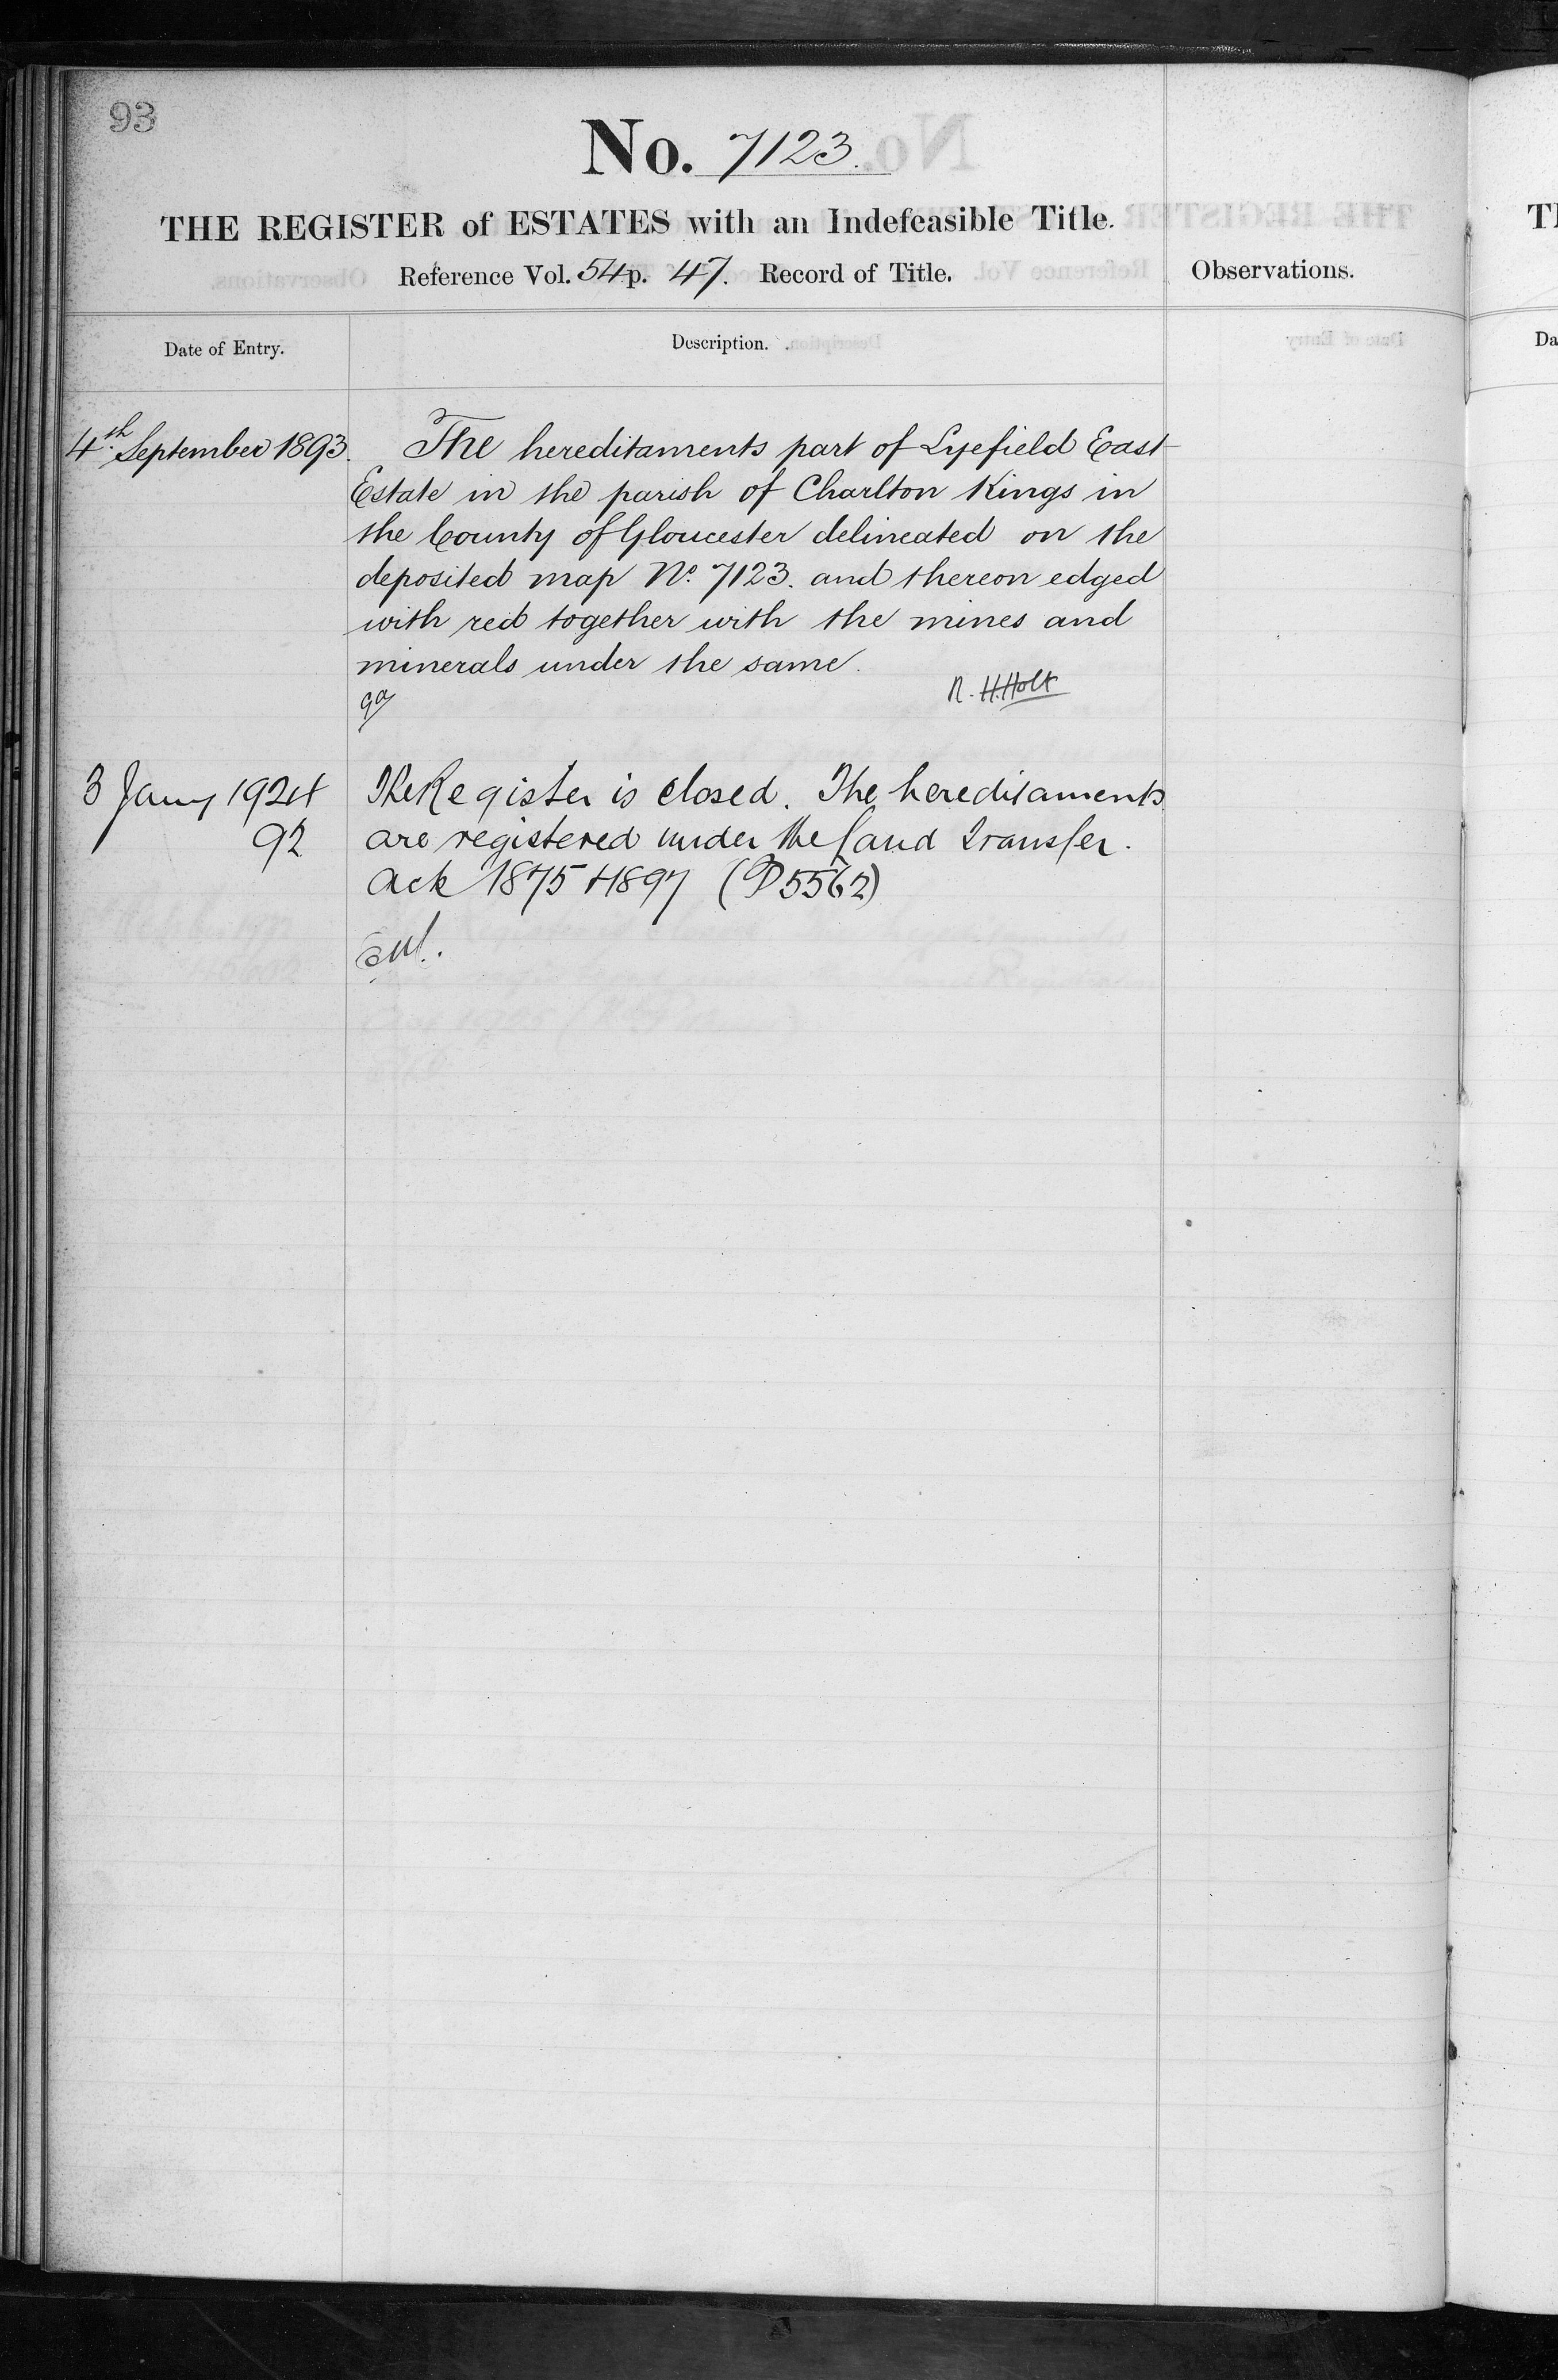 93
No. 7123.
THE REGISTER of ESTATES with an Indefeasible Title.
Reference Vol. 54 p. 47. Record of Title.
Observations.
Date of Entry.
Description.
4th September 1893.
The hereditaments part of Lyefield East
Estate in the parish of Charlton Kings in
the County of Gloucester delineated on the
deposited map No. 7123. and thereon edged
with red together with the mines and
minerals under the same.
R. H. Holt
3 Jany 1924
92
The Register is closed. The hereditaments
are registered under the Land Transfer.
Act 1875 & 1897 (P5562)